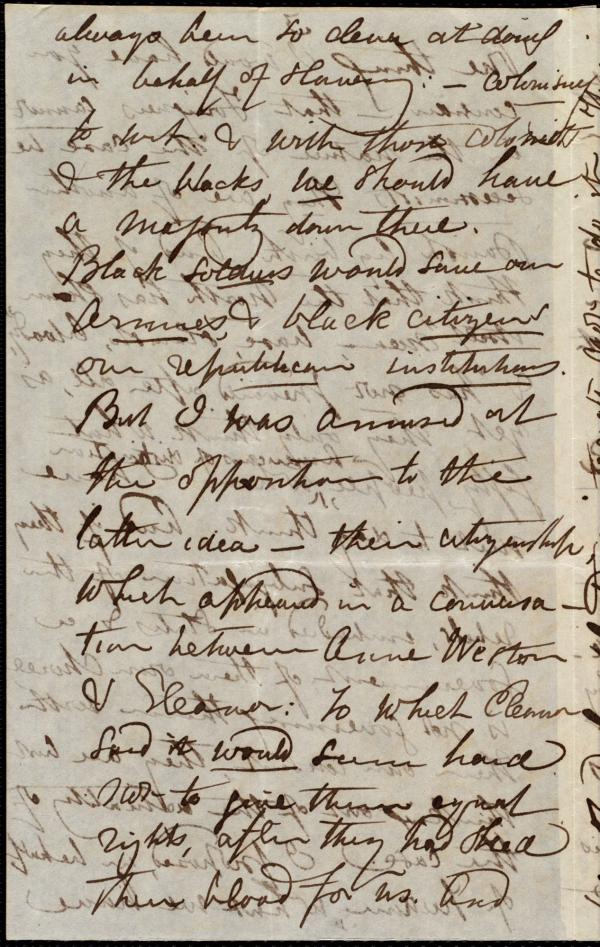 always been so clever at doing
in behalf of slavery: — colonising
to wit. & with those colonists
& the blacks, we should have
a majority down there.
Black soldiers would save our
armies, & black citizens
our republican institutions.
But I was amused at
the opposition to the
latter idea — their citizenship,
which appeared in a conversa-
tion between Anne Weston
& Eleanor: to which Eleanor
said it would seem hard
not to give them equal
rights, after they had shed
their blood for us. And